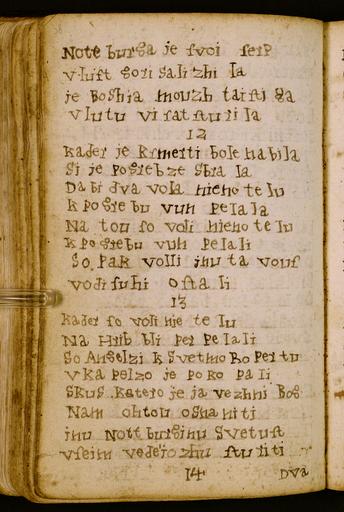 Note burga je svoi serp
v luft gori salizhi la
je Boshja mouzh taisti ga
v lutu vi sat stu ri la
12
kader je k smerti bole habila
si je pogrebze sbra la
Da bi dva vola nieno te lu
k pogrebu vun pelala
Na tou so voli nieno te lu
k pogrebu vun pelali
So pak volli inu ta vous
vodi suhi osta li
13
kader so voli nie te lu
Na Hrib bli per pelali
So Angelzi k svetmo Ro per tu
v ka pelzo je po ko pa li
skus katero je ja vezhni Bog
Nam ohtou osnaniti
inu Nott burgino svetust
vseim vedeiozhu sturiti
14 Dva